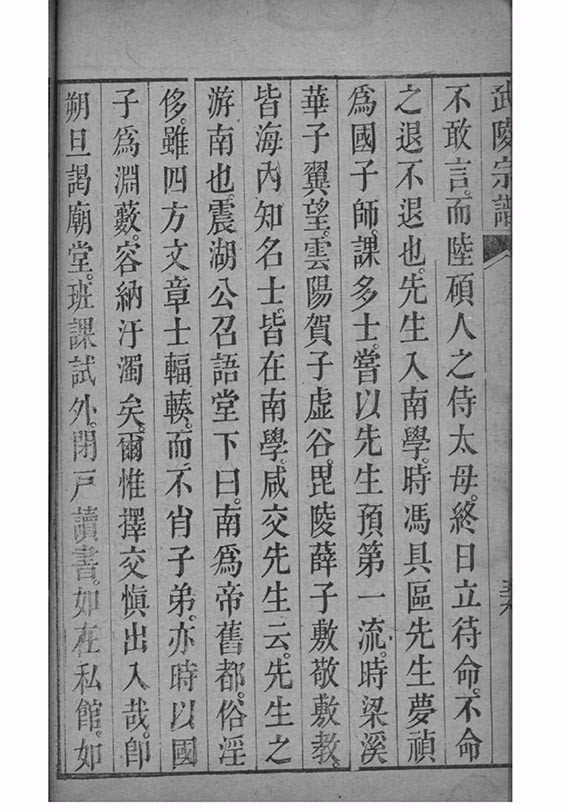 武陵宗譜
不敢言。而陸碩人之侍太母。終日立待命。不命
之退不退也。先生入南學。時馮具區先生夢禎
爲國子師。課多士。嘗以先生預第一流。時梁溪
華子翼望。雲陽賀子虛谷。毘陵薛子敷敬敷教。
皆海內知名士。皆在南學。咸交先生云。先生之
游南也。震湖公召語堂下曰。南爲帝舊都。俗淫
侈。雖四方文章士輻輳。而不肖子弟。亦時以國
子爲淵藪。容納汙濁矣。爾惟擇交愼出入哉。卽
朔旦謁廟堂。班課試外。閉戶讀書。如在私館。如